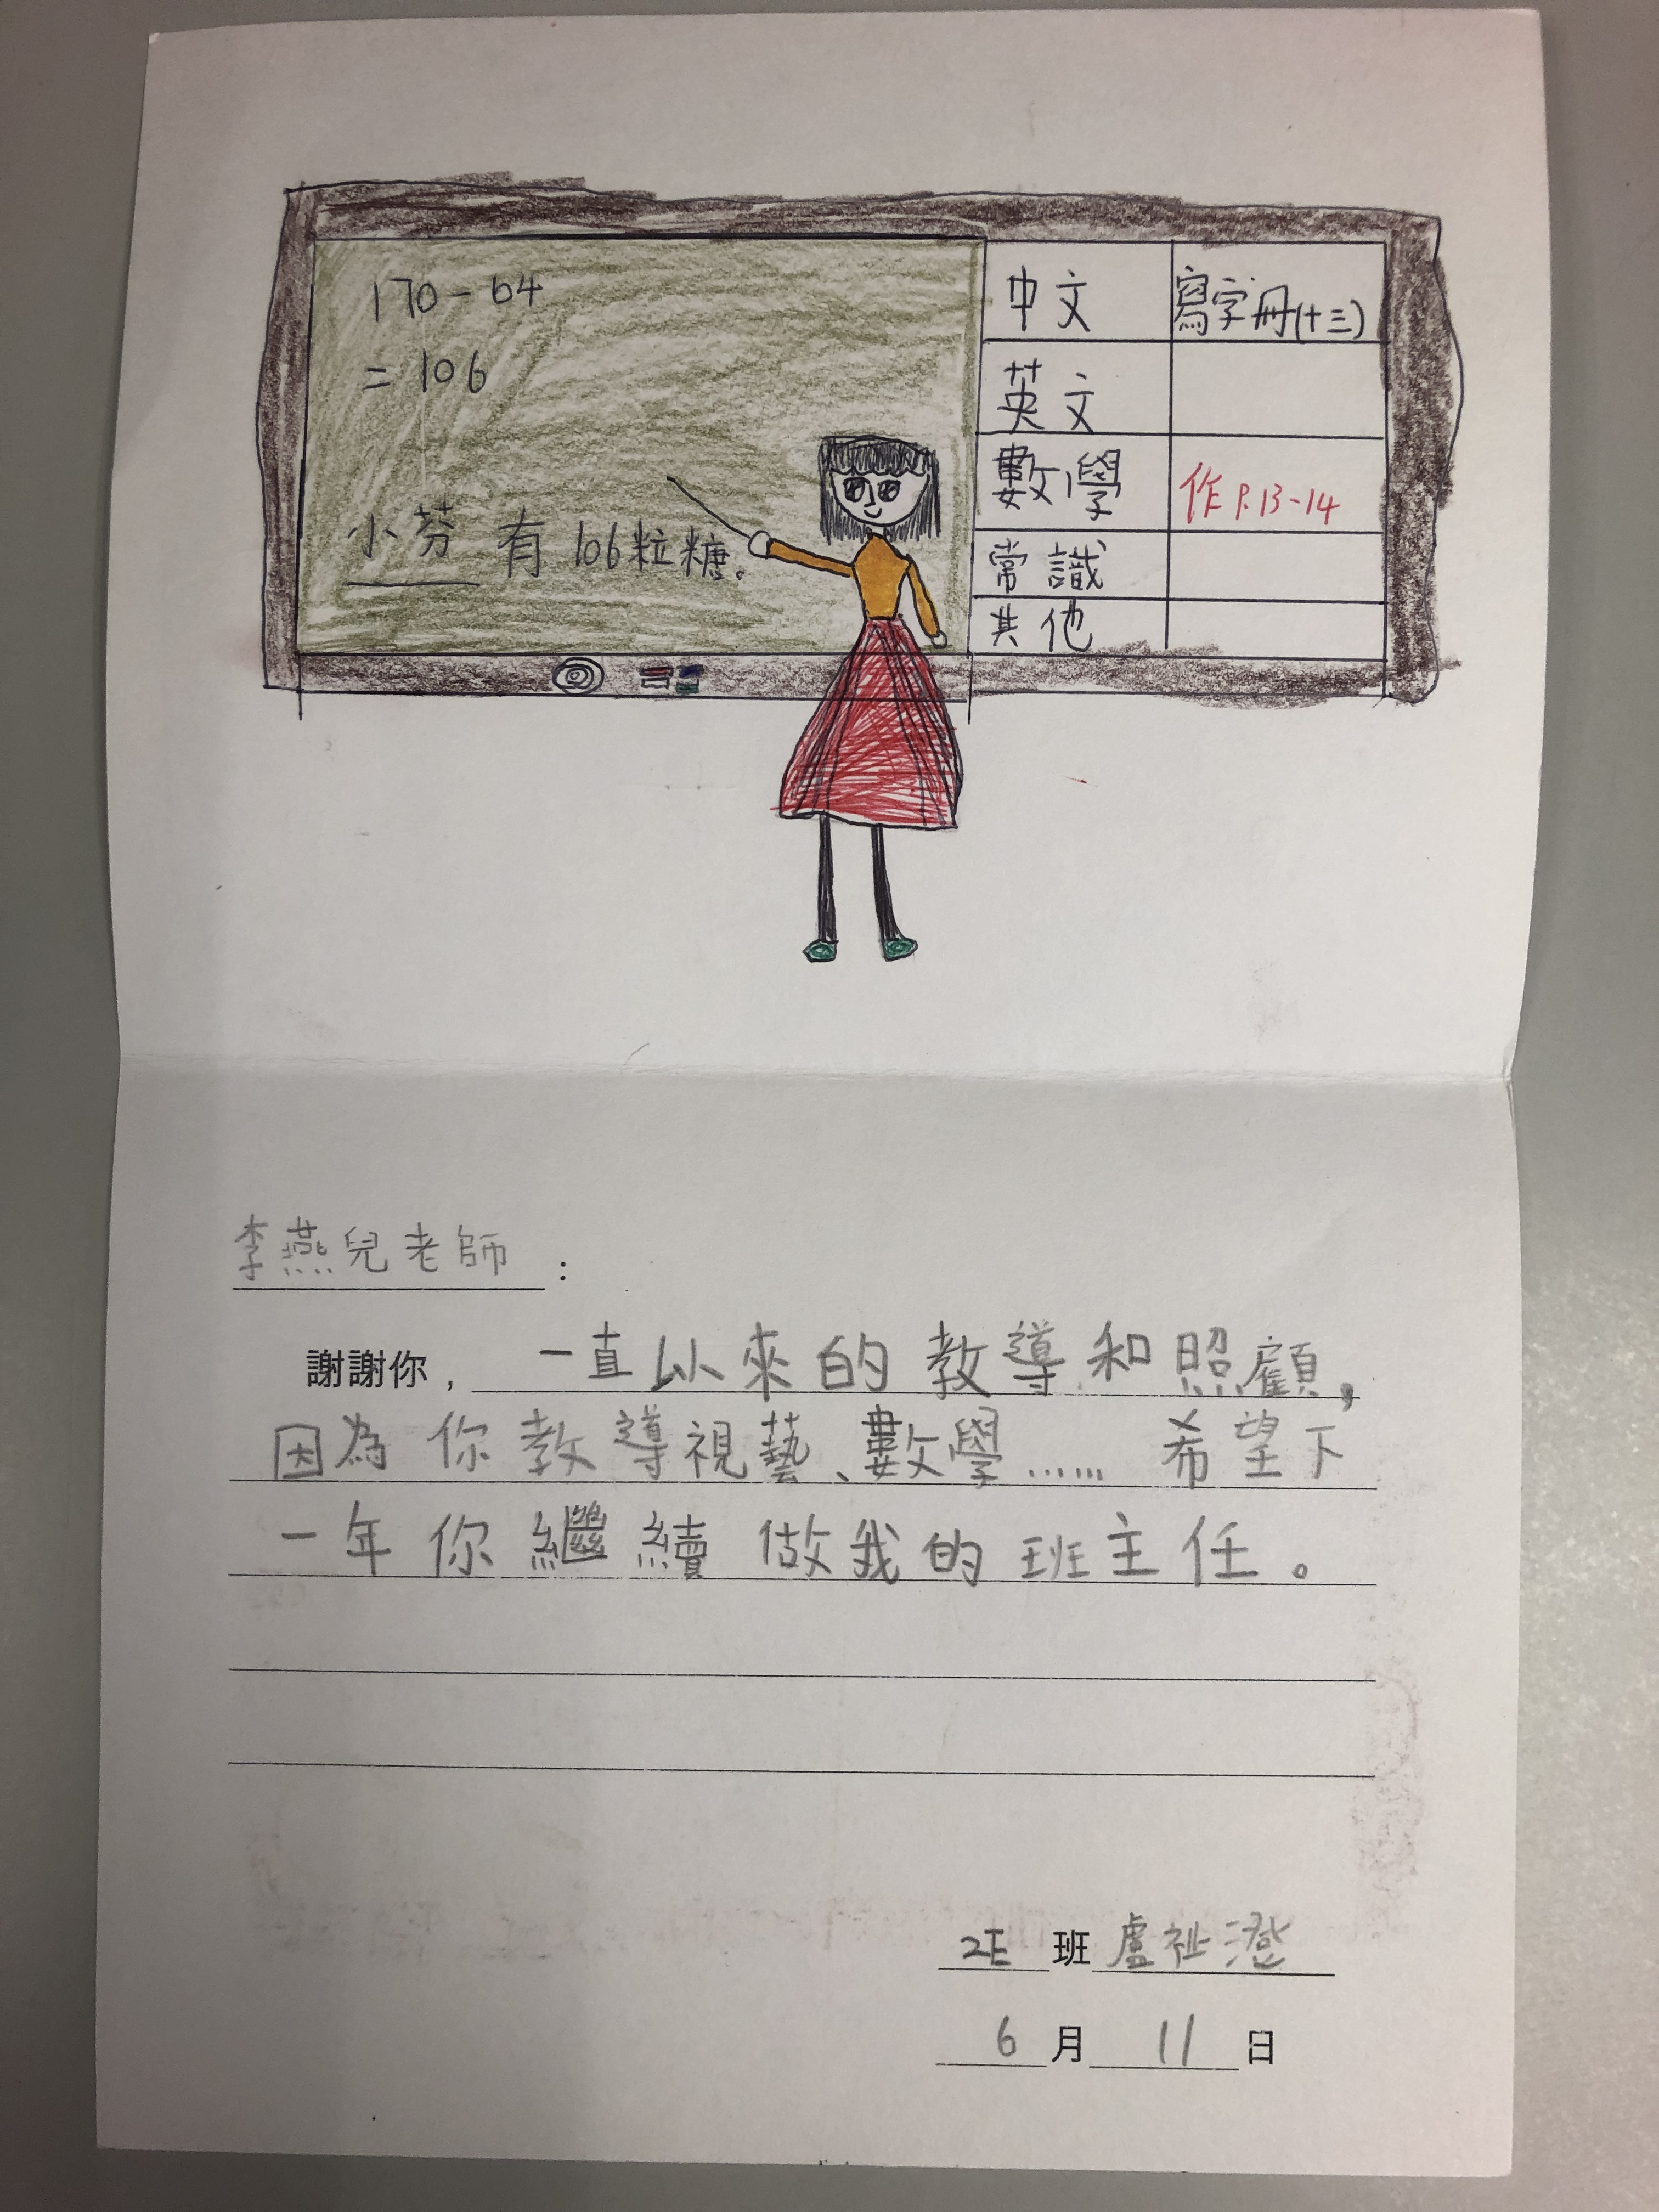 170-64
=106
小芬有106粒糖。
中文 寫字冊(十三)
英文
數學 作P.13-14
常識
其他
李燕兒老師：
謝謝你，一直以來的教導和照顧，
因為你教導視藝、數學……希望下
一年你繼續做我的班主任。
2E班盧祉澄
6月11日